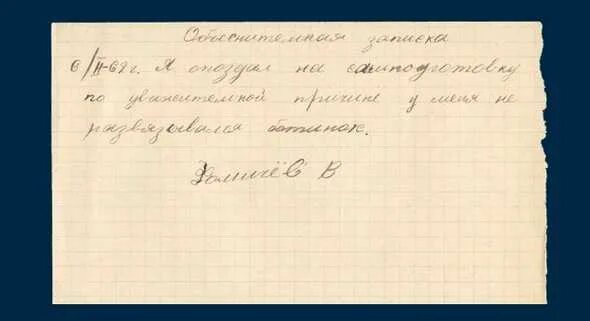 Объяснительная записка
6/II-68г. Я опоздал на самподготовку
по уважительной причине у меня не
развязывался ботинок.
В